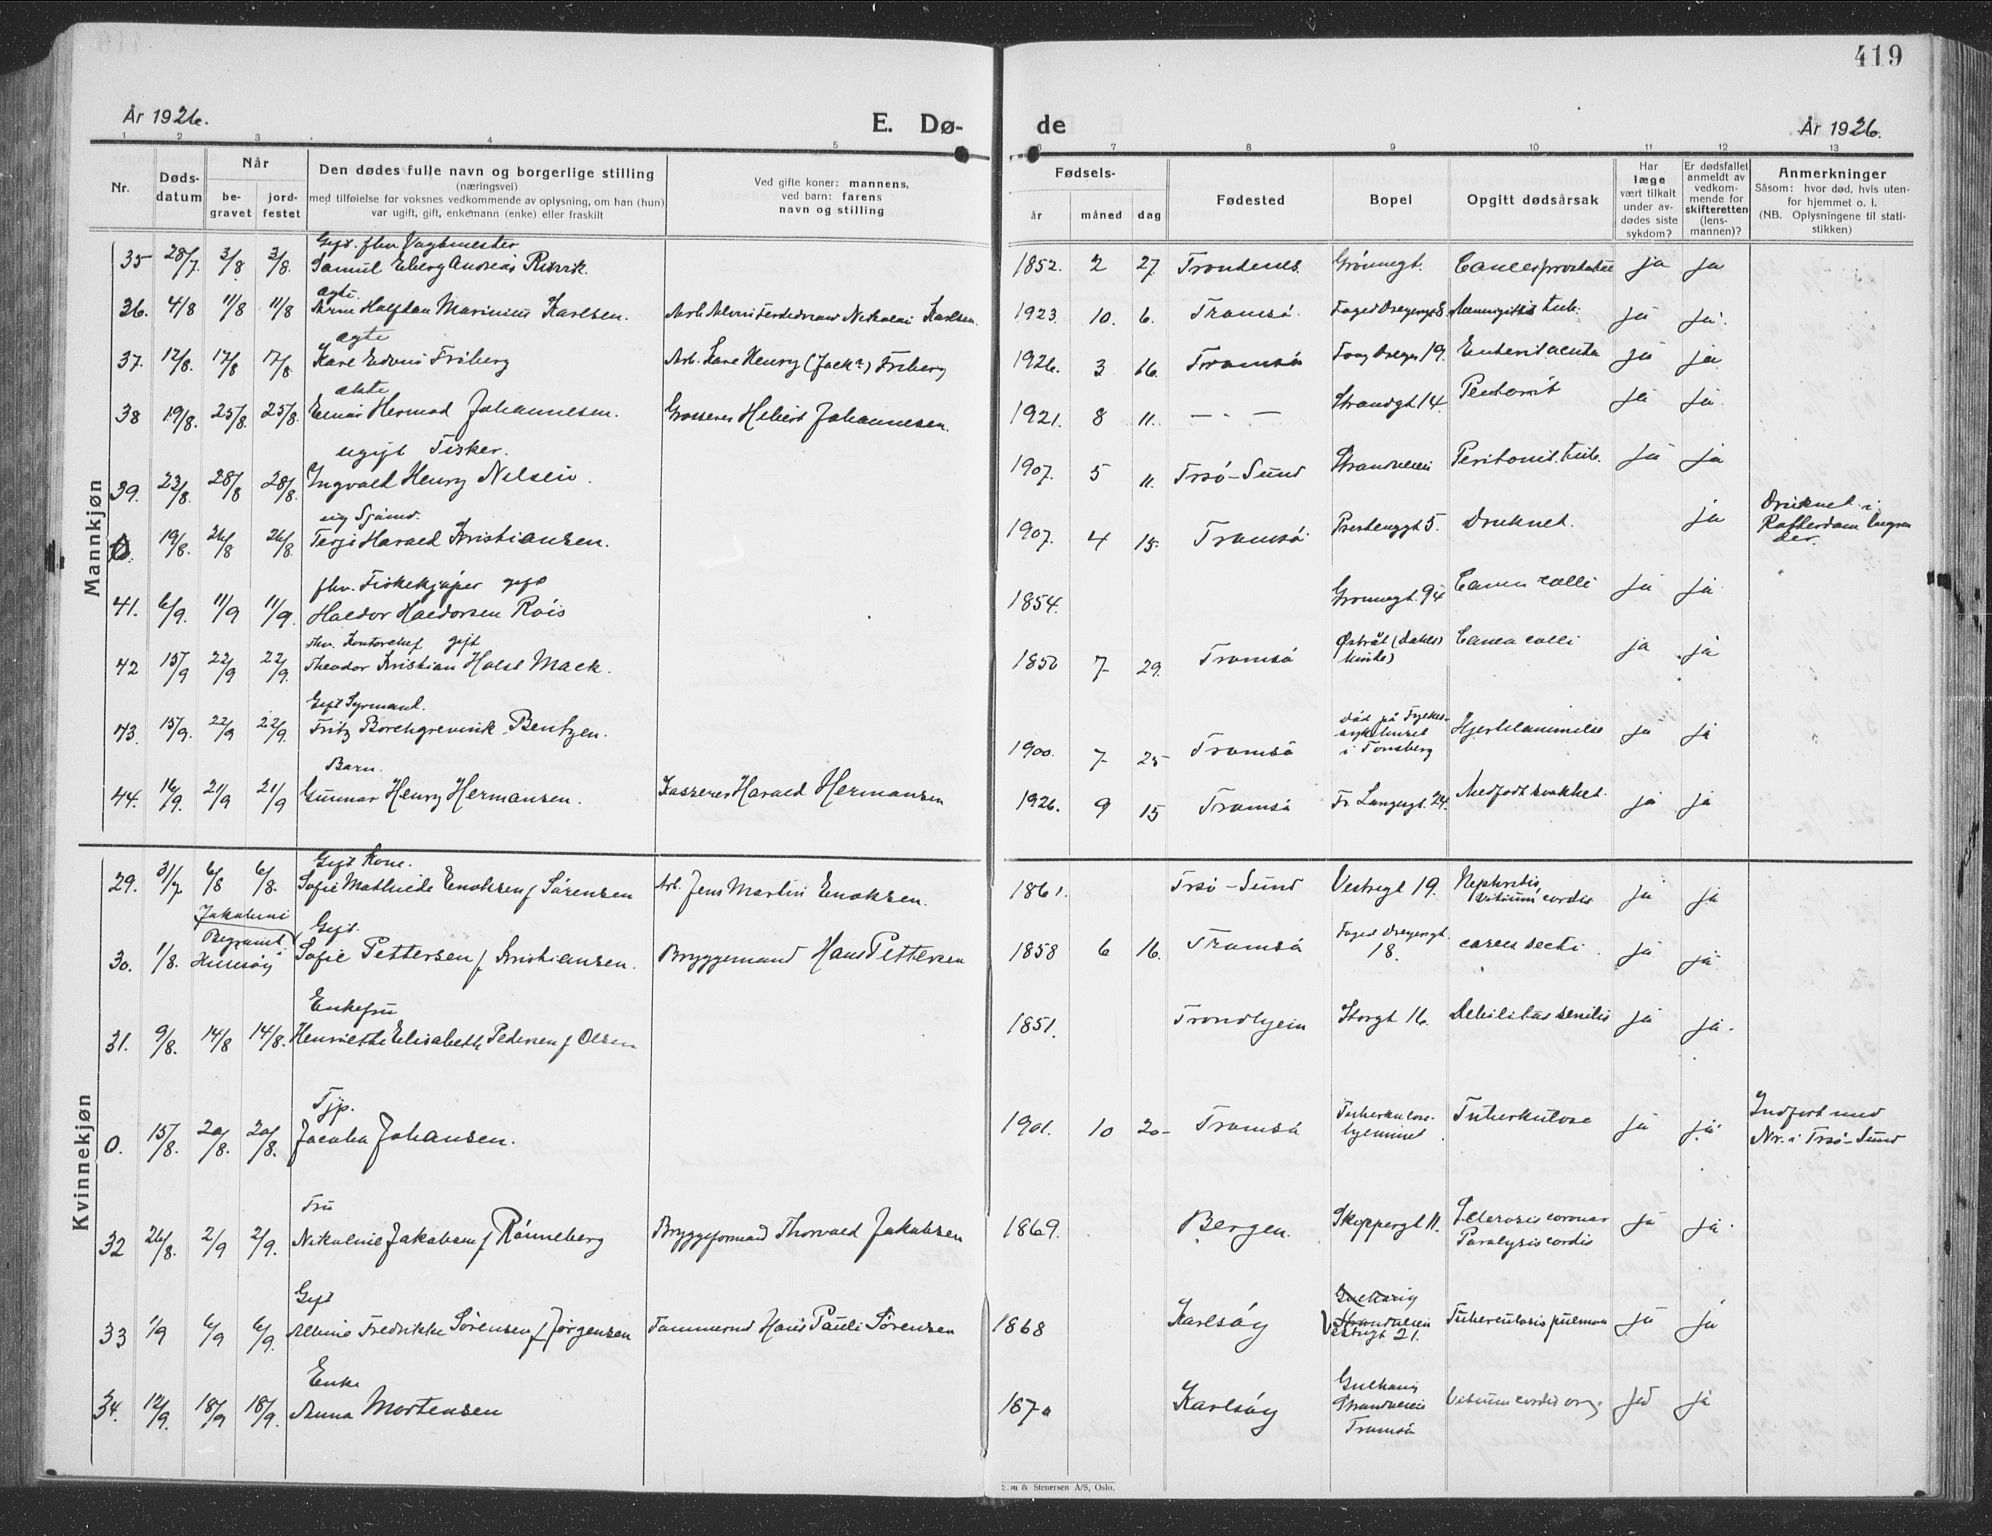 419
År 1926.
E. Dø-
de
År 1926.
1 2 3 4 5
6 7 8 9 10 11 12 13
Nr.
Døds-
datum
Når
be-
gravet
jord-
festet
Den dødes fulle navn og borgerlige stilling
(næringsvei)
med tilføielse for voksnes vedkommende av oplysning, om han (hun)
var ugift, gift, enkemann (enke) eller fraskilt
Ved gifte koner: mannens,
ved barn: farens
navn og stilling
Fødsels-
år måned dag
Fødested
Bopel
Opgitt dødsårsak
Har
læge
vært tilkalt
under av-
dødes siste
sykdom?
Er dødsfallet
anmeldt av
vedkom-
mende for
skifteretten
(lens-
mannen)?
Anmerkninger
Såsom: hvor død, hvis uten-
for hjemmet o. l.
(NB. Oplysningene til stati-
stikken)
Mannkjøn
Gift. fhv. Vagtmester
35 28/7. 3/8 3/8. Samul Eberg Andreas Risvik. 1852. 2 27 Trondenes. Grønnegt. Cancer prostatae ja ja
ægte.
36. 4/8 11/8 11/8 Arne Halfdan Marinius Karlsen. Arb. Ferdednand Nikolai Karlsen. 1923. 10. 6. Tromsø. Meningitis tub. ja ja.
ægte
37. 12/8. 17/8 17/8 Kare Edvin Friberg Arb. Kare Henry (Jack) Friberg 1926. 3 16. Tromsø 19. Enterit acuta ja ja
ekte
38 19/8. 25/8. 25/8. Einar Hermod Johannesen. Grosserer Johannesen. 1921. 8 11. — - — Strandgt 14. ja ja.
ugift Fisker.
39. 23/8. 28/8 28/8. Ingvald Henry Nelsen. 1907. 5 11. Trsø-Sund Strandveien Peritonit. tub. ja ja
ug Sjømd.
0. 19/8. 26/8 26/8 Terje Harald Kristiansen. 1907. 4 15. Tromsø. Prestenggt 5. Druknet. ja
Druknet i
Rotterdam
der.
fhv. Fiskekjøper gift
41. 6/9. 11/9 11/9. Haldor Haldorsen Rois 1854. Grønnegt. 94 Cancer colli ja ja
Fhv. Kontorchef gift
42 15/9 22/9 22/9. Theodor Kristian Holst Mack. 1850 7 29. Tromsø Cancer colli ja ja
Gift Styrmand.
43. 15/9. 22/9 22/9. Fritz Borchgrevink Bentzen. 1900. 7 25 Tromsø
Død på Fylkes-
sykehuset
i Tønsberg
Hjertelammelse ja ja
Barn.
44. 16/9. 21/9 21/9 Gunnar Henry Hermansen. Kasserer Harald Hermansen 1926. 9 15 Tromsø Fr Langesgt. 24. Medfødt svakhet. ja ja
Kvinnekjøn
Gift Kone.
29. 31/7 6/8 6/8. Sofie Mathilde Enoksen f Sørensen Arb. Jens Martin Enoksen. 1861. Trsø-Sund Vestregt 19.
Nephritis,
Vitium cordis
ja ja
Gift.
30. 1/8. Begravet Sofie Pettersen f Kristiansen. Bryggemand Hans Pettersen 1858 6 16. Tromsø 18. ja ja
Enkefru
31. 9/8. 14/8 14/8. Henriethe Elisabeth Pedersen f Olsen 1851. Trondhjem Storgt 16. Debilitas senilis ja ja.
Tjp.
0. 15/8. 20/8. 20/8. Jacoba Johansen. 1901. 10 20 Tromsø
Tuberkulose-
hjemmet
Tuberkulose ja ja
Indført med
Nr. i Trsø-Sund
Fru
32 26/8. 2/9 2/9. Nikoline Jakobsen f Rønneberg Bryggeformand Thorvald Jakobsen 1869. Bergen. Skippergt 11.
Sclerosis coronar
Paralysis cordis
ja ja.
Gift
33 1/9 6/9 6/9. Albine Fredrikke Sørensen f Jørgensen Tømmermd Hans Pauli Sørensen 1868 Karlsøy
Strandveien
Vestregt 21.
Tuberculosis pulmon ja ja
Enke
34. 12/9. 18/9 18/9. Anna Mortensen 1870 Karlsøy
Strandveien
Tromsø
Vitium cordis org. ja ja
& Stenersen A/S, Oslo.